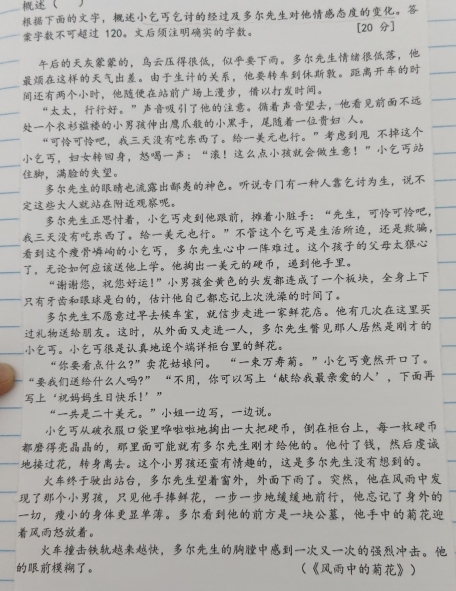 概述（ ）
根据下面的文字，概述小乞丐乞讨的经过及多尔先生对他情感态度的变化。答
案字数不可超过 120。文后须注明确实的字数。 [20 分]
午后的天灰蒙蒙的，乌云压得很低，似乎要下雨。多尔先生情绪很低落，他
最烦在这样的天气出差。由于生计的关系，他要转车到休斯敦。距离开车的时
间还有两个小时，他随便在站前广场上漫步，借以打发时间。
“太太，行行好。”声音吸引了他的注意。循着声音望去，他看见前面不远
处一个衣衫褴褛的小男孩伸出鹰爪般的小黑手，尾随着一位贵妇 人。
“可怜可怜吧，我三天没有吃东西了。给一美元也行。”考虑到甩 不掉这个
小乞丐，妇女转回身，怒喝一声：“滚！这么点小孩就会做生意！”小乞丐站
住脚，满脸的失望。
多尔先生的眼睛也流露出鄙夷的神色。听说专门有一种人靠乞讨为生，说不
定这些大人就站在附近观察呢。
多尔先生正思忖着，小乞丐走到他跟前，摊着小脏手：“先生，可怜可怜吧，
我三天没有吃东西了。给一美元也行。”不管这个乞丐是生活所迫，还是欺骗，
看到这个瘦骨嶙峋的小乞丐，多尔先生心中一阵难过。这个孩子的父母太狠心
了，无论如何应该送他上学。他掏出一美元的硬币，递到他手里。
“谢谢您，祝您好运！”小男孩金黄色的头发都连成了一个板块，全身上下
只有牙齿和眼球是白的，估计他自己都忘记上次洗澡的时间了。
多尔先生不愿意过早去候车室，就信步走进一家鲜花店。他有几次在这里买
过礼物送给朋友。这时，从外面又走进一人，多尔先生瞥见那人居然是刚才的
小乞丐。小乞丐很是认真地逐个端详柜台里的鲜花。
“你要看点什么？”卖花姑娘问。 “一束万寿菊。”小乞丐竟然开口了。
“要我们送给什么人吗？” “不用，你可以写上‘献给我最亲爱的人’，下面再
写上‘祝妈妈生日快乐！’”
“一共是二十美元。”小姐一边写，一边说。
小乞丐从破衣服口袋里哗啦啦地掏出一大把硬币，倒在柜台上，每一枚硬币
都磨得亮晶晶的，那里面可能就有多尔先生刚才给他的。他付了钱，然后虔诚
地接过花，转身离去。这个小男孩还蛮有情趣的，这是多尔先生没有想到的。
火车终于驶出站台，多尔先生望着窗外，外面下雨了。突然，他在风雨中发
现了那个小男孩，只见他手捧鲜花，一步一步地缓缓地前行，他忘记了身外的
一切，瘦小的身体更显单薄。多尔看到他的前方是一块公墓，他手中的菊花迎
着风雨怒放着。
火车撞击铁轨越来越快，多尔先生的胸膛中感到一次又一次的强烈冲击。他
的眼前模糊了。 （《风雨中的菊花》）